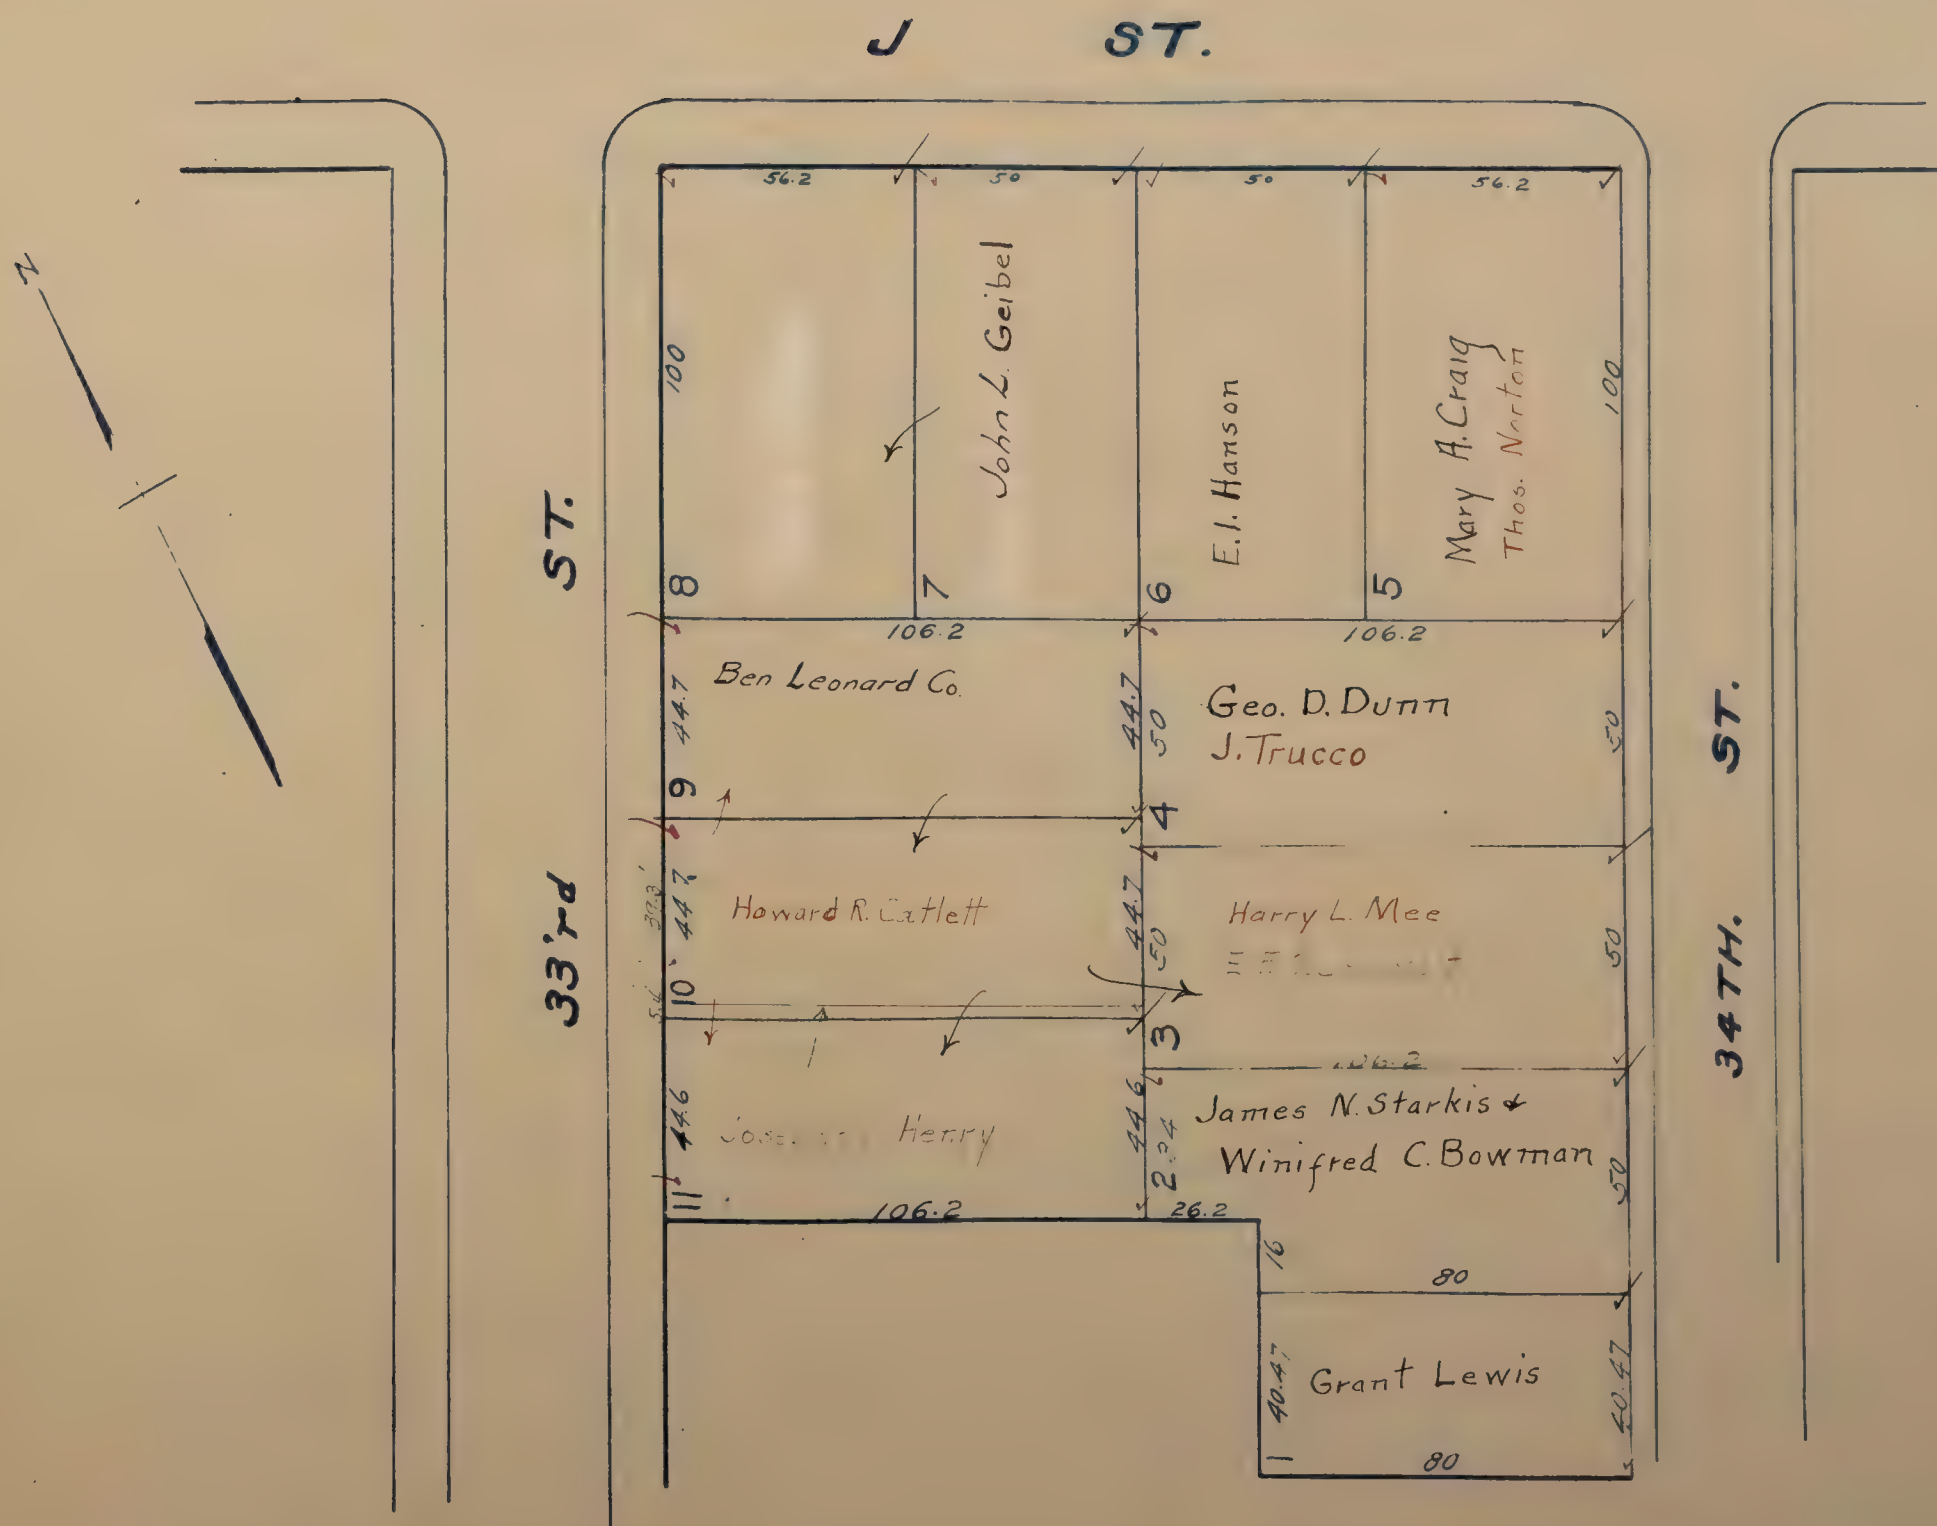 J ST.
N
56.2
50
50
56.2
100
John L. Geibel
E.I. Hanson
Mary A. Craig
Thos. Norton
100
8
7
6
5
106.2
106.2
ST.
33'rd
Ben Leonard Co.
44.7
44.7
50
Geo. D. Dunn
J. Trucco
50
9
4
ST.
34TH.
39.3'
44.7
Howard R. Catlett
44.7
50
Harry L. Mee
50
5.4
10
3
106.2
44.6
Henry
44.6
34
James N. Starkis &
Winifred C. Bowman
50
11
2
106.2
26.2
16
80
40.47
Grant Lewis
40.47
1
80